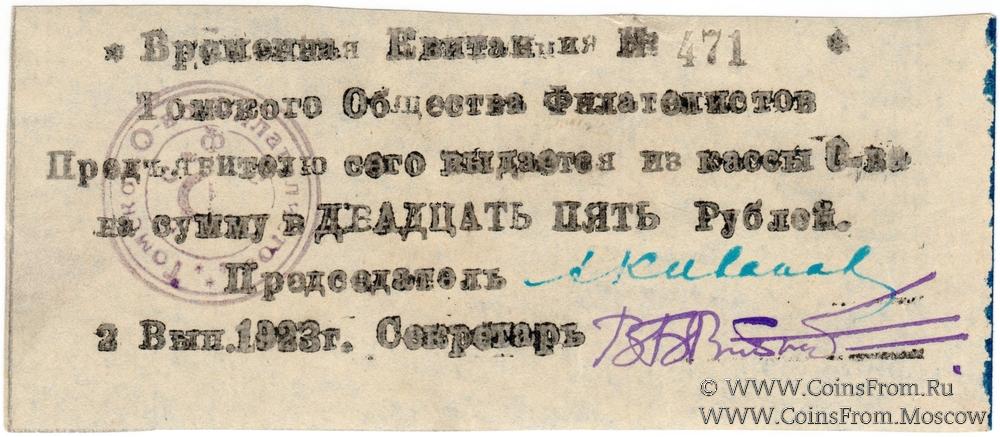 * Временная Квитанция № 471 *
Томского Общества Филателистов
Предъявителю сего выдается из кассы О-ва
на сумму в ДВАДЦАТЬ ПЯТЬ Рублей.
Председатель
2 Вып.1923г. Секретарь
© WWW.CoinsFrom.Ru
WWW.CoinsFrom.Moscow